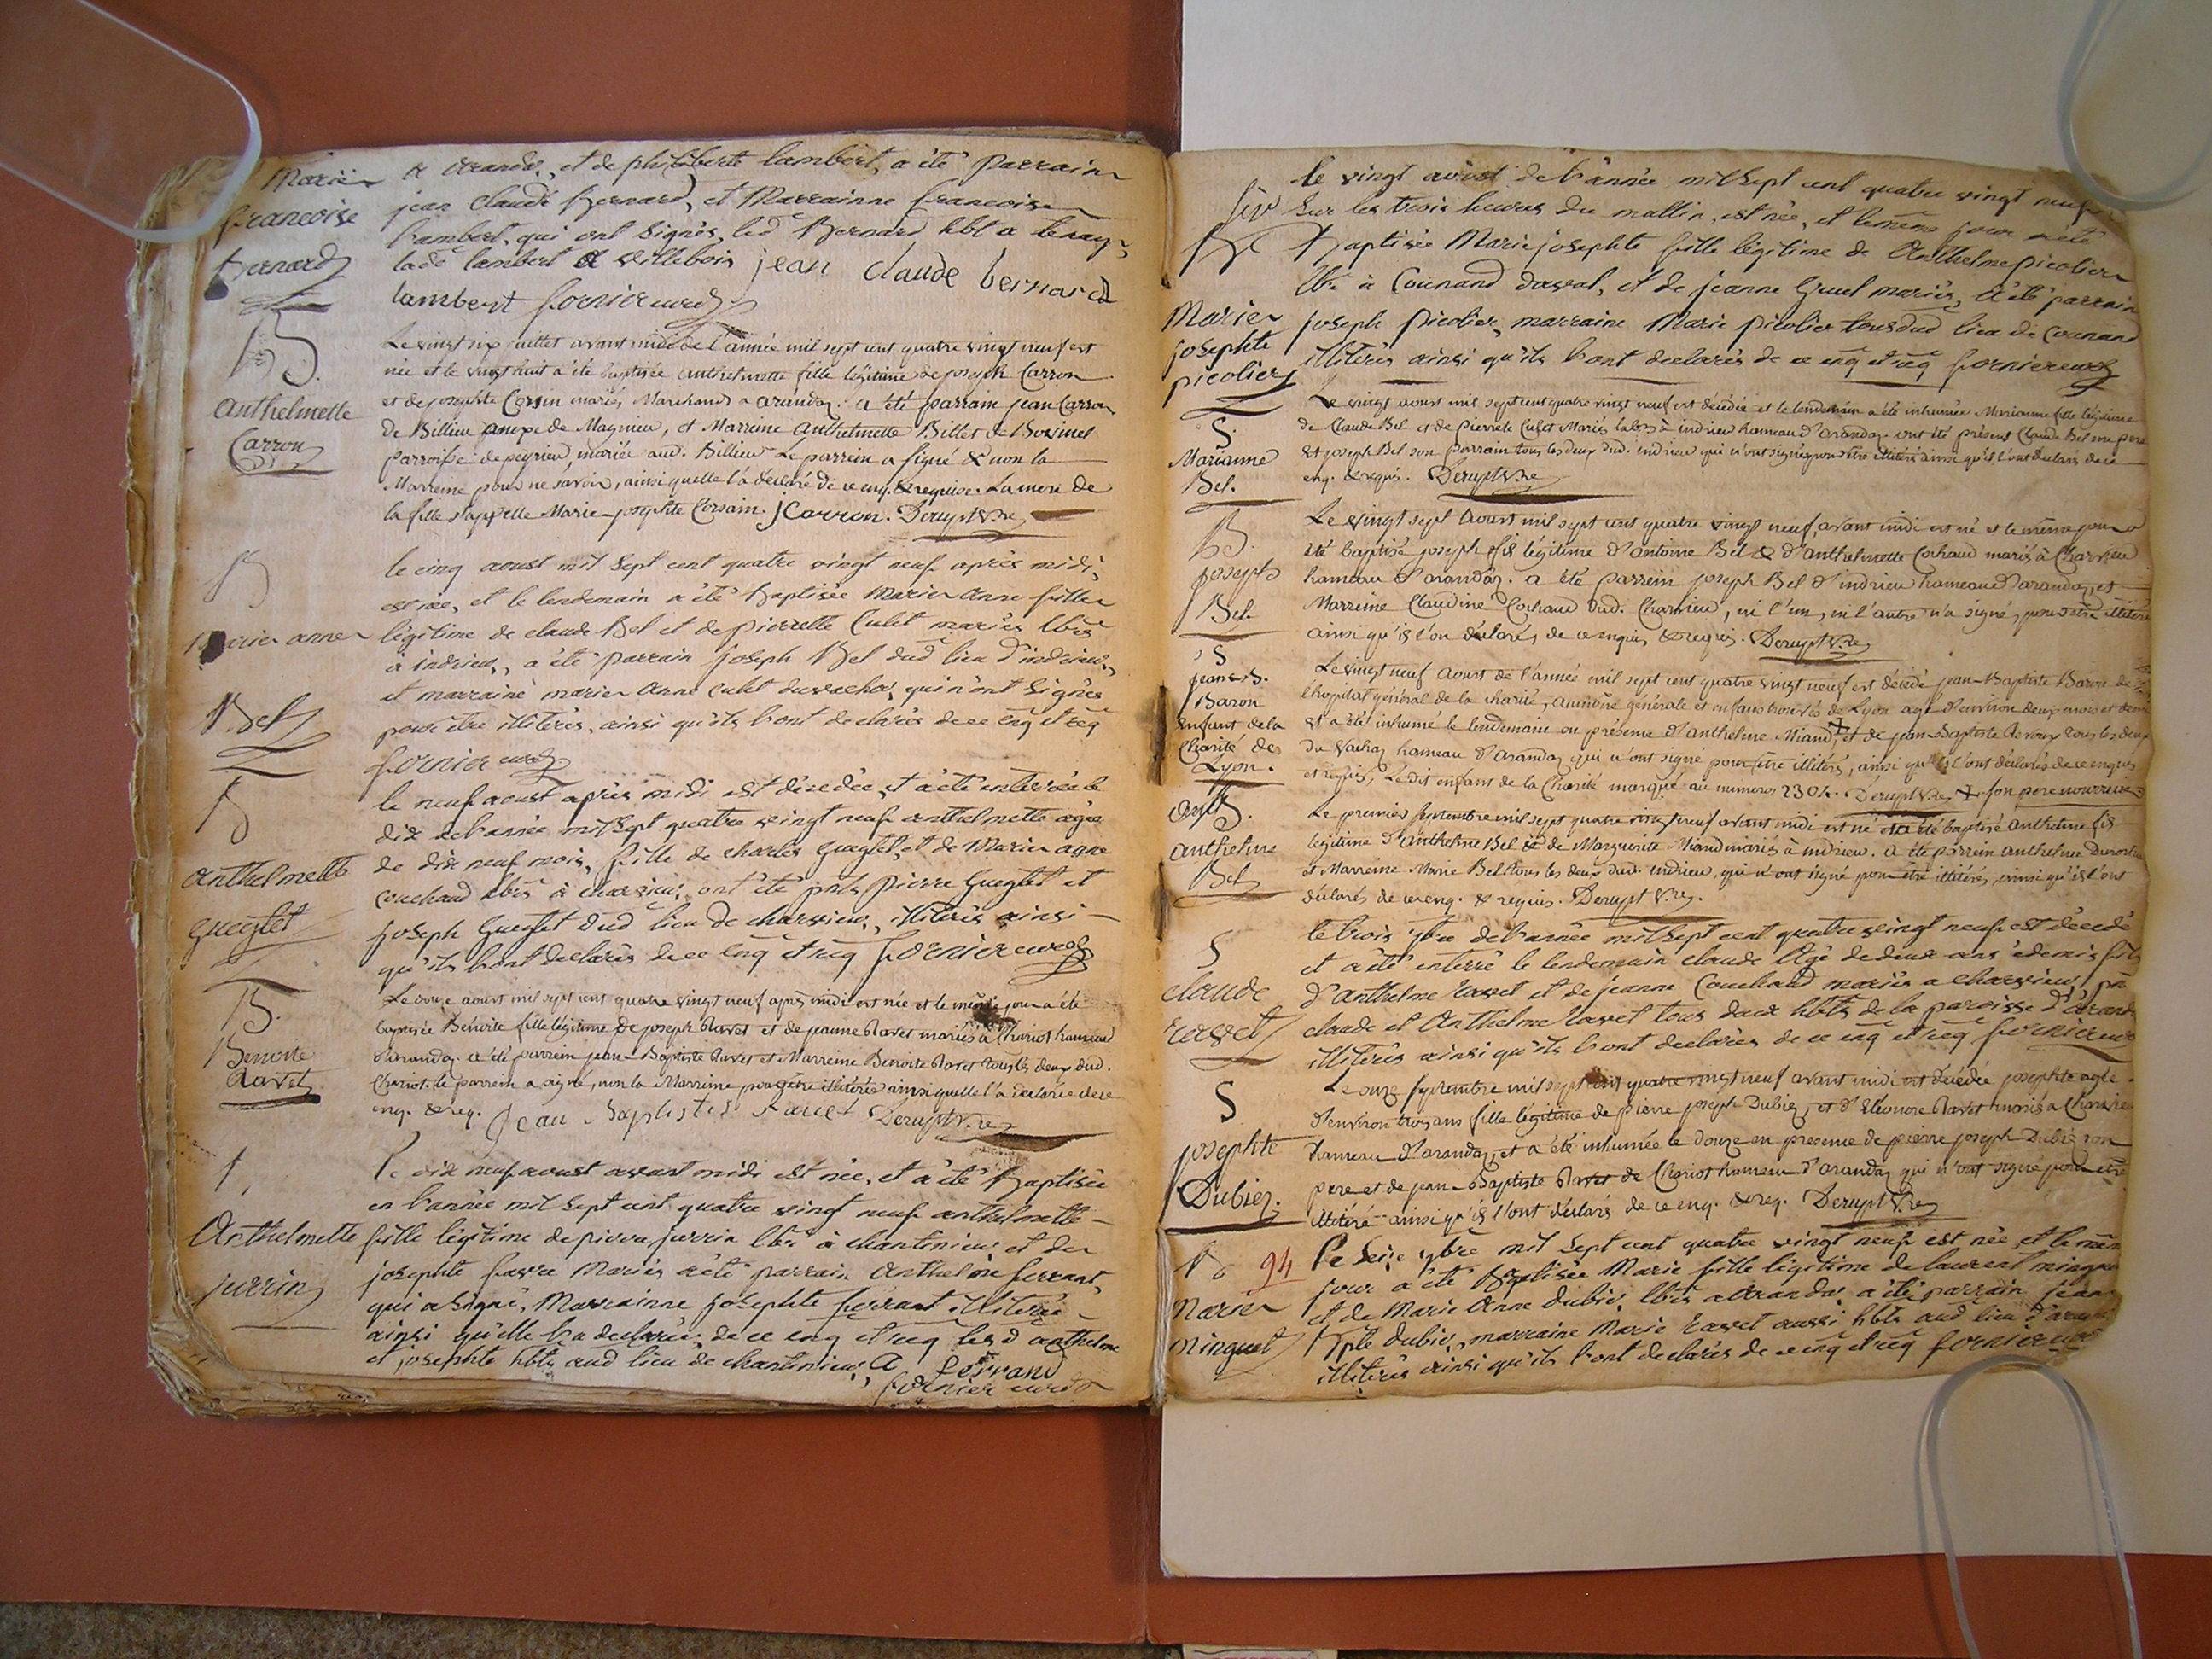 Marie
francoise
Bernard
a arandas, et de philiberte lambert, a été parrain
jean claude Bernard, et Marrainne francoise
Lambert, qui ont signés, led Bernard hbt a
lade lambert a villebois jean claude bernard
lambert fornier curé
B.
anthelmette
Carron
Le vingt six juillet avant midi de l'année mil sept cent quatre vingt neuf est
née et le vingt huit a été baptisée anthelmette fille légitime de joseph Carron
et de josephte Corsin mariés, Marchands a arandaz. a été parrain jean Carron
de Billieu anexe de Magnieu, et Marreine anthelmette Billet de
parroisse de peyrieu, mariée aud. Billieu Le parrein a signé & non la
Marreine pour ne savoir, ainsi quelle l'a declaré de ce enq. & requise. La mere de
la fille s'appelle Marie-josephte Corsain. jCarron. Derupt V.re
B
Marie anne
Bel
le cinq aoust mil sept cent quatre vingt neuf après midi,
est née, et le lendemain a été Baptisée Marie Anne fille
légitime de claude Bel et de pierrette Culet mariés lbrs
à indrieu, a été parrain joseph Bel dud lieu d'indrieu,
et marraine marie Anne culet duvachat, qui n'ont signés
pour être illiterés, ainsi qu'ils l'ont declarés de ce enq et req
fornier curé
anthelmette
gueglet
le neuf aoust après midi est décedée, et a été enterrée le
dix de l'année mil sept quatre vingt neuf anthelmette agée
de dix neuf mois, fille de charles gueglet, et de Marie agne
couchand lbrs à charvieu, ont été pnts pierre Gueglet et
joseph Gueglet dud lieu de charvieu, illiterés ainsi
qu'ils l'ont declarés de ce enq et req fornier curé
B.
Benoite
Ravet
Le douze aoust mil sept cent quatre vingt neuf après midi est née et le même jour a été
baptisée Benoite fille légitime de joseph Ravet et de jeanne Ravet mariés à Chariot hameau
d'arandaz. a été parrein jean-Baptiste Ravet et Marreine Benoite Ravet tous les deux dud.
Chariot. le parrein a signé, non la Marreine pour être illiterée ainsi quelle l'a declarée de ce
enq. & req. Jean Baptiste Ravet Derupt V.re
Anthelmette
jurrin
Le dix neuf aoust avant midi est née, et a été Baptisée
en l'année mil sept cent quatre vingt neuf anthelmette
fille légitime de pierre jurrin lbr à chantinieu, et de
josephte favre Mariés a été parrain Anthelme ferrant,
qui a signé, Marrainne josephte ferrant illiterée
ainsi qu'elle l'a declarée de ce enq et req lesd anthelme
et josephte hbts aud lieu de chantinieu, A ferrand
fornier curé
Marie
josephte
picolier
le vingt aoust de l'année mil sept cent quatre vingt neuf
sur les trois heures du mattin, est née, et le même jour a été
Baptisée Marie josephte fille légitime de Anthelme picolier
lbr à Counand daval, et de jeanne Gruel mariés, a été parrain
joseph picolier, marraine Marie picolier tous dud lieu de Counand
illiterés ainsi qu'ils l'ont declarés de ce enq et req fornier curé
S.
Marianne
Bel.
Le vingt aoust mil sept cent quatre vingt neuf est décédée et le lendemain a été inhumée Marianne fille légitime
de Claude Bel et de pierrete Culet Mariés labrs à indrieu hameau d'arandaz. ont été présent Claude Bel son pere
et joseph Bel son parrain tous les deux dud. indrieu qui n'ont signé pour être illiteré ainsi qu'ils l'ont declarés de ce
enq. & requis. Derupt V.re
B.
joseph
Bel.
Le vingt sept Aoust mil sept cent quatre vingt neuf, avant midi est né et le même jour a
été baptisé joseph fils légitime d'antoine Bel & d'anthelmette Cochaud mariés à Charvieu
hameau d'arandaz. a été parrein joseph Bel d'indrieu hameau d'arandaz, et
Marreine Claudine Cochaud dud. Charvieu, ni l'un, ni l'autre n'a signé, pour être illiteré
ainsi qu'ils l'on déclarés, de ce enquis & requis. Derupt V.re
S
jean-B.
Baron
enfant de la
Charité de
Lyon.
Le vingt neuf Aoust de l'année mil sept cent quatre vingt neuf est décédé jean-Baptiste Baron de
l'hopital général de la charité, aumône générale et enfans trouvés de Lyon agé d'environ deux mois et demi
et a été inhumé le lendemain en présence d'anthelme Miand + et de jean-Baptiste Revoux tous les deux
du Vachaz hameau d'arandaz qui n'ont signé pour être illiterés, ainsi qu'ils l'ont déclarés de ce enquis
et requis, Le dit enfans de la Charité marqué au numero 2304. Derupt V.re + son pere nourricier
B.
anthelme
Bel
Le premier septembre mil sept quatre vingt neuf avant midi est né et a été baptisé anthelme fils
légitime d'anthelme Bel & de Marguerite Miand mariés à indrieu. a été parrein anthelme
et Marreine Marie Bel tous les deux dud. indrieu, qui n'ont signé pour être illiterés, ainsi qu'ils l'ont
déclarés de ce enq. & requis. Derupt V.re.
S
claude
ravet
le trois 7bre de l'année mil sept cent quatre vingt neuf est décedé
et a été enterré le lendemain claude Agé de deux ans et demis fils
d'anthelme ravet et de jeanne Couchand mariés a charvieu, pnts
claude et Anthelme ravet tous deux hbts de la paroisse d'arandas
illiterés ainsi qu'ils l'ont declarés de ce enq et req fornier curé
S
josephte
Dubiez.
Le onze septembre mil sept cent quatre vingt neuf avant midi est décédée josephte agée
d'environ trois ans fille légitime de pierre joseph Dubiez, et d'Eléonore Ravet mariés a Charvieu
hameau d'arandaz, et a été inhumée le douze en presence de pierre joseph Dubiez son
pere et de jean-Baptiste Ravet de Chariot hameau d'arandaz qui n'ont signé pour être
illiteré ainsi qu'ils l'ont déclarés de ce enq. & req. Derupt V.re
94
Marie
Minguet
Le seize 7bre mil sept cent quatre vingt neuf est née et le même
jour a été Baptisée Marie fille légitime de laurent minguet
et de Marie Anne dubié, lbrs a arandas, a été parrain jean
Bpte dubié, marraine Marie ravet aussi hbts aud lieu d'arandas
illiterés ainsi qu'ils l'ont declarés de ce enq et req fornier curé